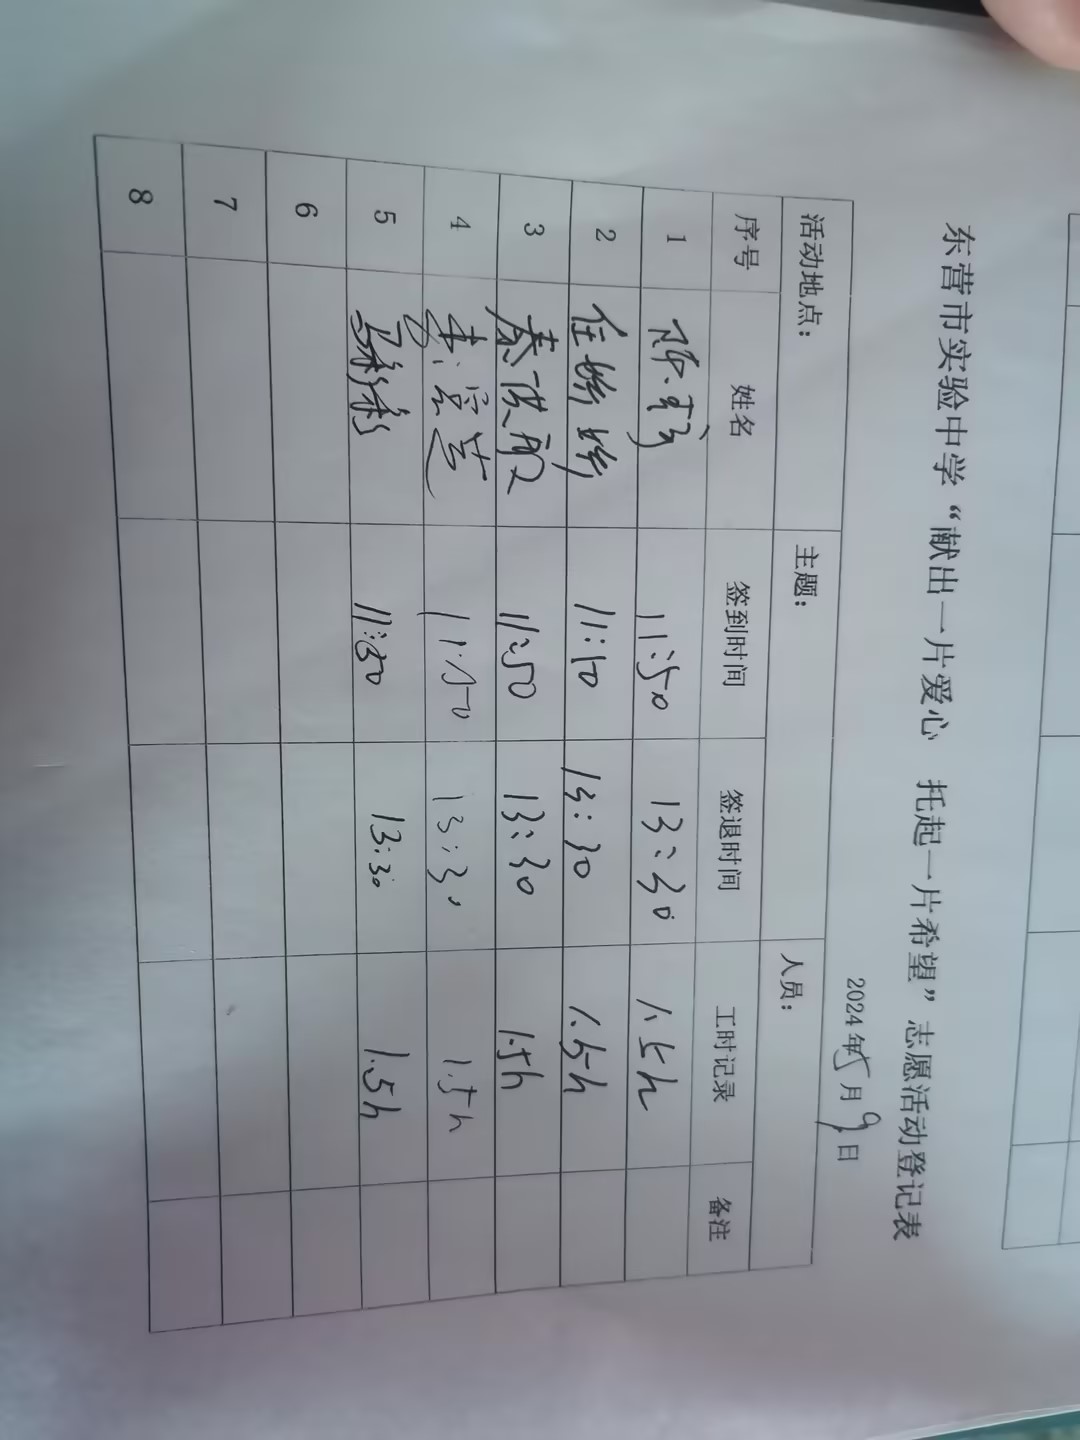 东营市实验中学“献出一片爱心 托起一片希望”志愿活动登记表
2024年5月9日
活动地点： 主题： 人员：
序号 姓名 签到时间 签退时间 工时记录 备注
1 11:50 13:30 1.5h
2 任娇娇 11:10 13:30 1.5h
3 秦洪敏 11:50 13:30 1.5h
4 11:50 13:30 1.5h
5 11:50 13:30 1.5h
6
7
8